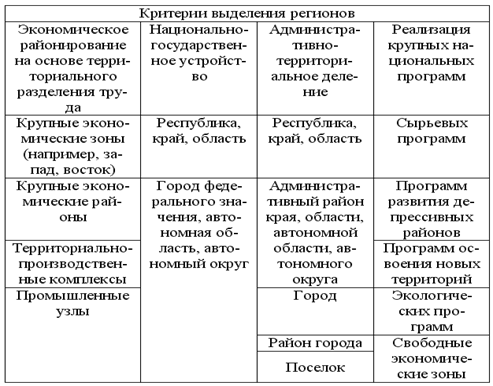 Критерии выделения регионов
Экономическое
районирование
на основе терри-
ториального
разделения тру-
да
Национально-
государствен-
ное устройст-
во
Администра-
тивно-
территори-
альное деле-
ние
Реализация
крупных на-
циональных
программ
Крупные эконо-
мические зоны
(например, за-
пад, восток)
Республика,
край, область
Республика,
край, область
Сырьевых
программ
Крупные эконо-
мические рай-
оны
Город феде-
рального зна-
чения, авто-
номная об-
ласть, авто-
номный округ
Администра-
тивный район
края, области,
автономной
области, ав-
тономного
округа
Программ
развития де-
прессивных
районов
Территориально-
производствен-
ные комплексы
Программ ос-
воения новых
территорий
Промышленные
узлы
Город
Экологиче-
ских про-
грамм
Район города
Поселок
Свободные
экономиче-
ские зоны